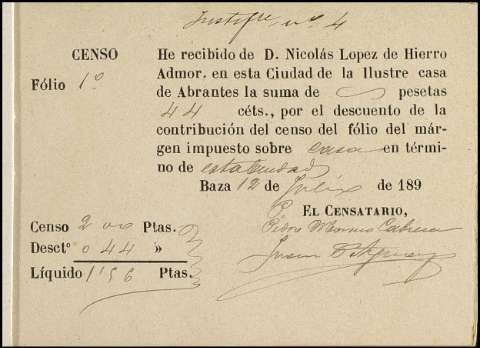 Justifte nº 4
CENSO
Fólio 1º
He recibido de D. Nicolás Lopez de Hierro
Admor. en esta Ciudad de la Ilustre casa
de Abrantes la suma de pesetas
44 céts., por el descuento de la
contribución del censo del fólio del már-
gen impuesto sobre casa en térmi-
no de esta Ciudad
Baza 12 de Julio de 189
EL CENSATARIO,
Censo 2 00 Ptas.
Desctº 0 44 »
Líquido 1'56 Ptas.
Cabrera
Juan